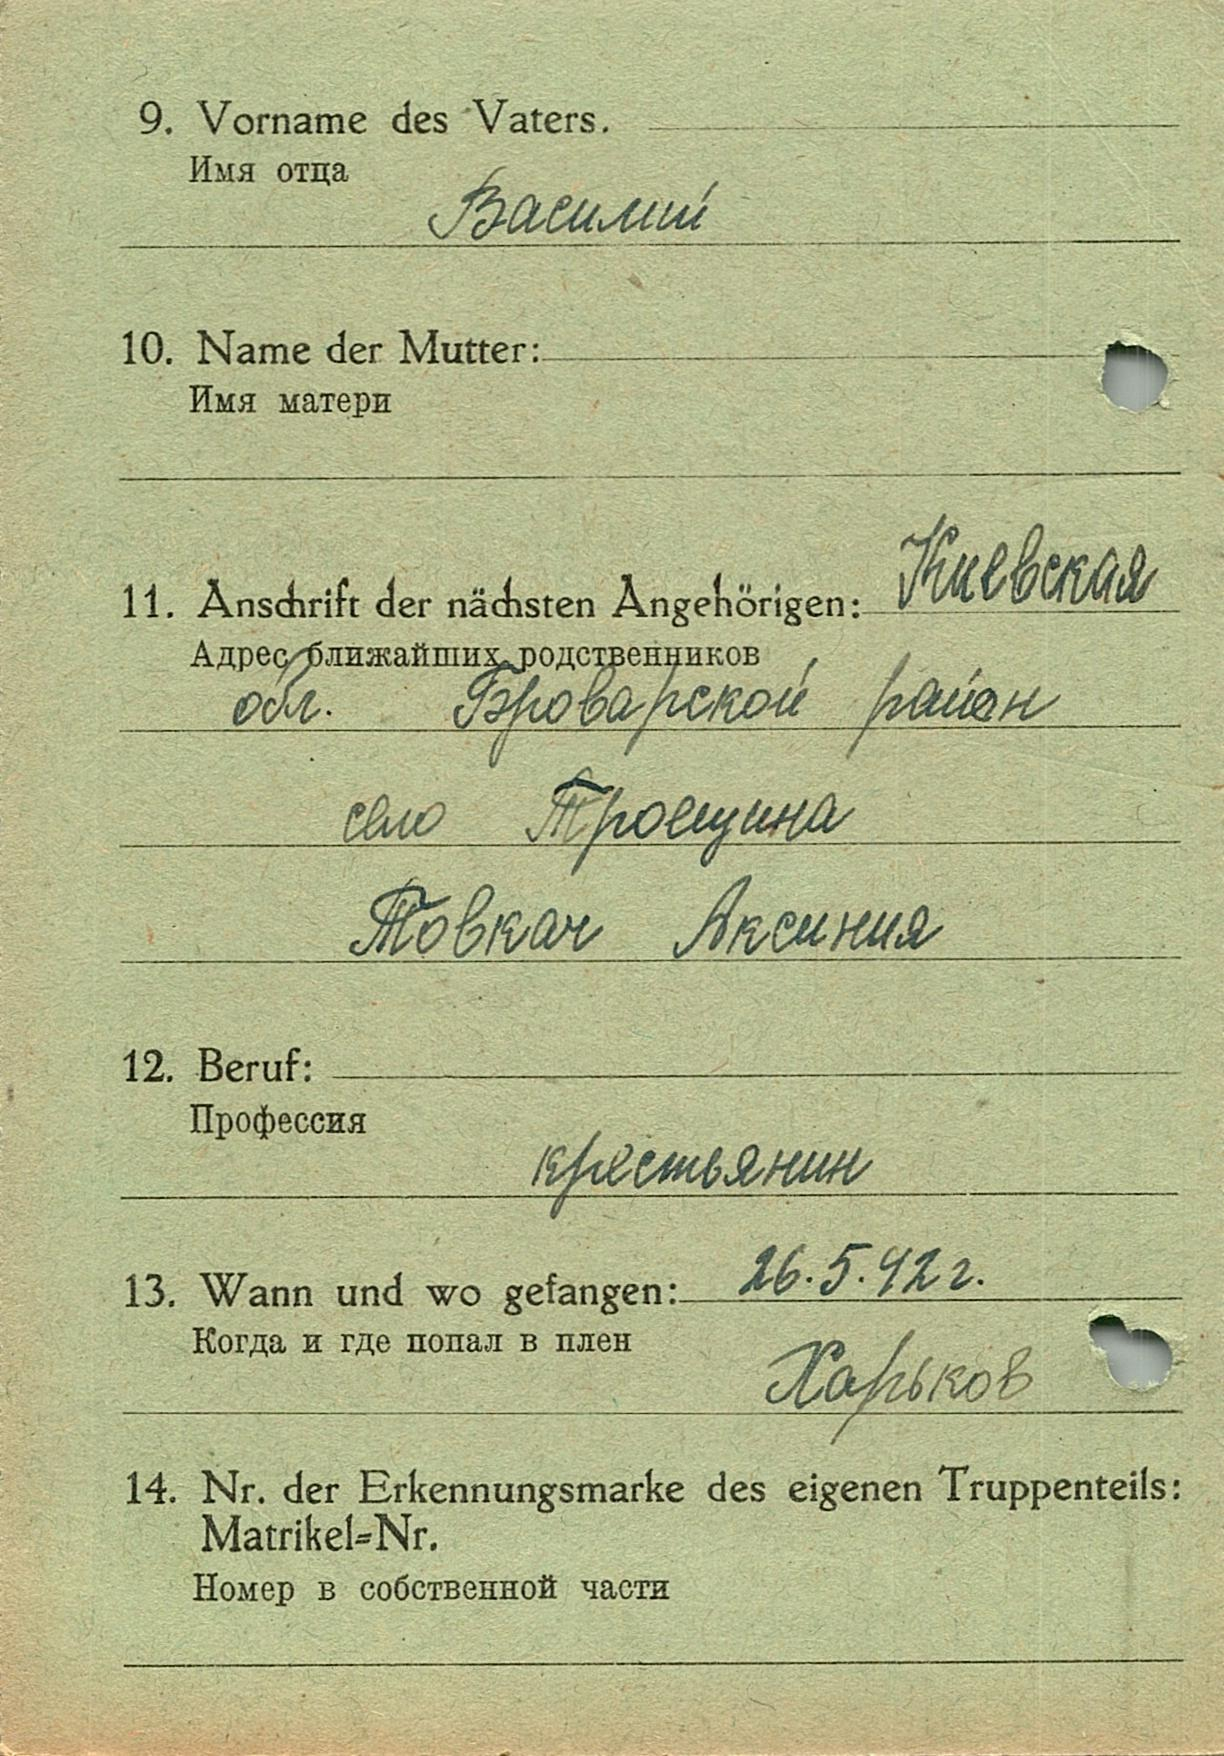 9. Vorname des Vaters.
Имя отца
Василий
10. Name der Mutter:
Имя матери
11. Anschrift der nächsten Angehörigen: Киевская
Адрес ближайших родственников
обл. Броварской район
село Троещина
Товкач Аксиния
12. Beruf:
Профессия
крестьянин
13. Wann und wo gefangen: 26.5.42 г.
Когда и где попал в плен
Харьков
14. Nr. der Erkennungsmarke des eigenen Truppenteils:
Matrikel=Nr.
Номер в собственной части